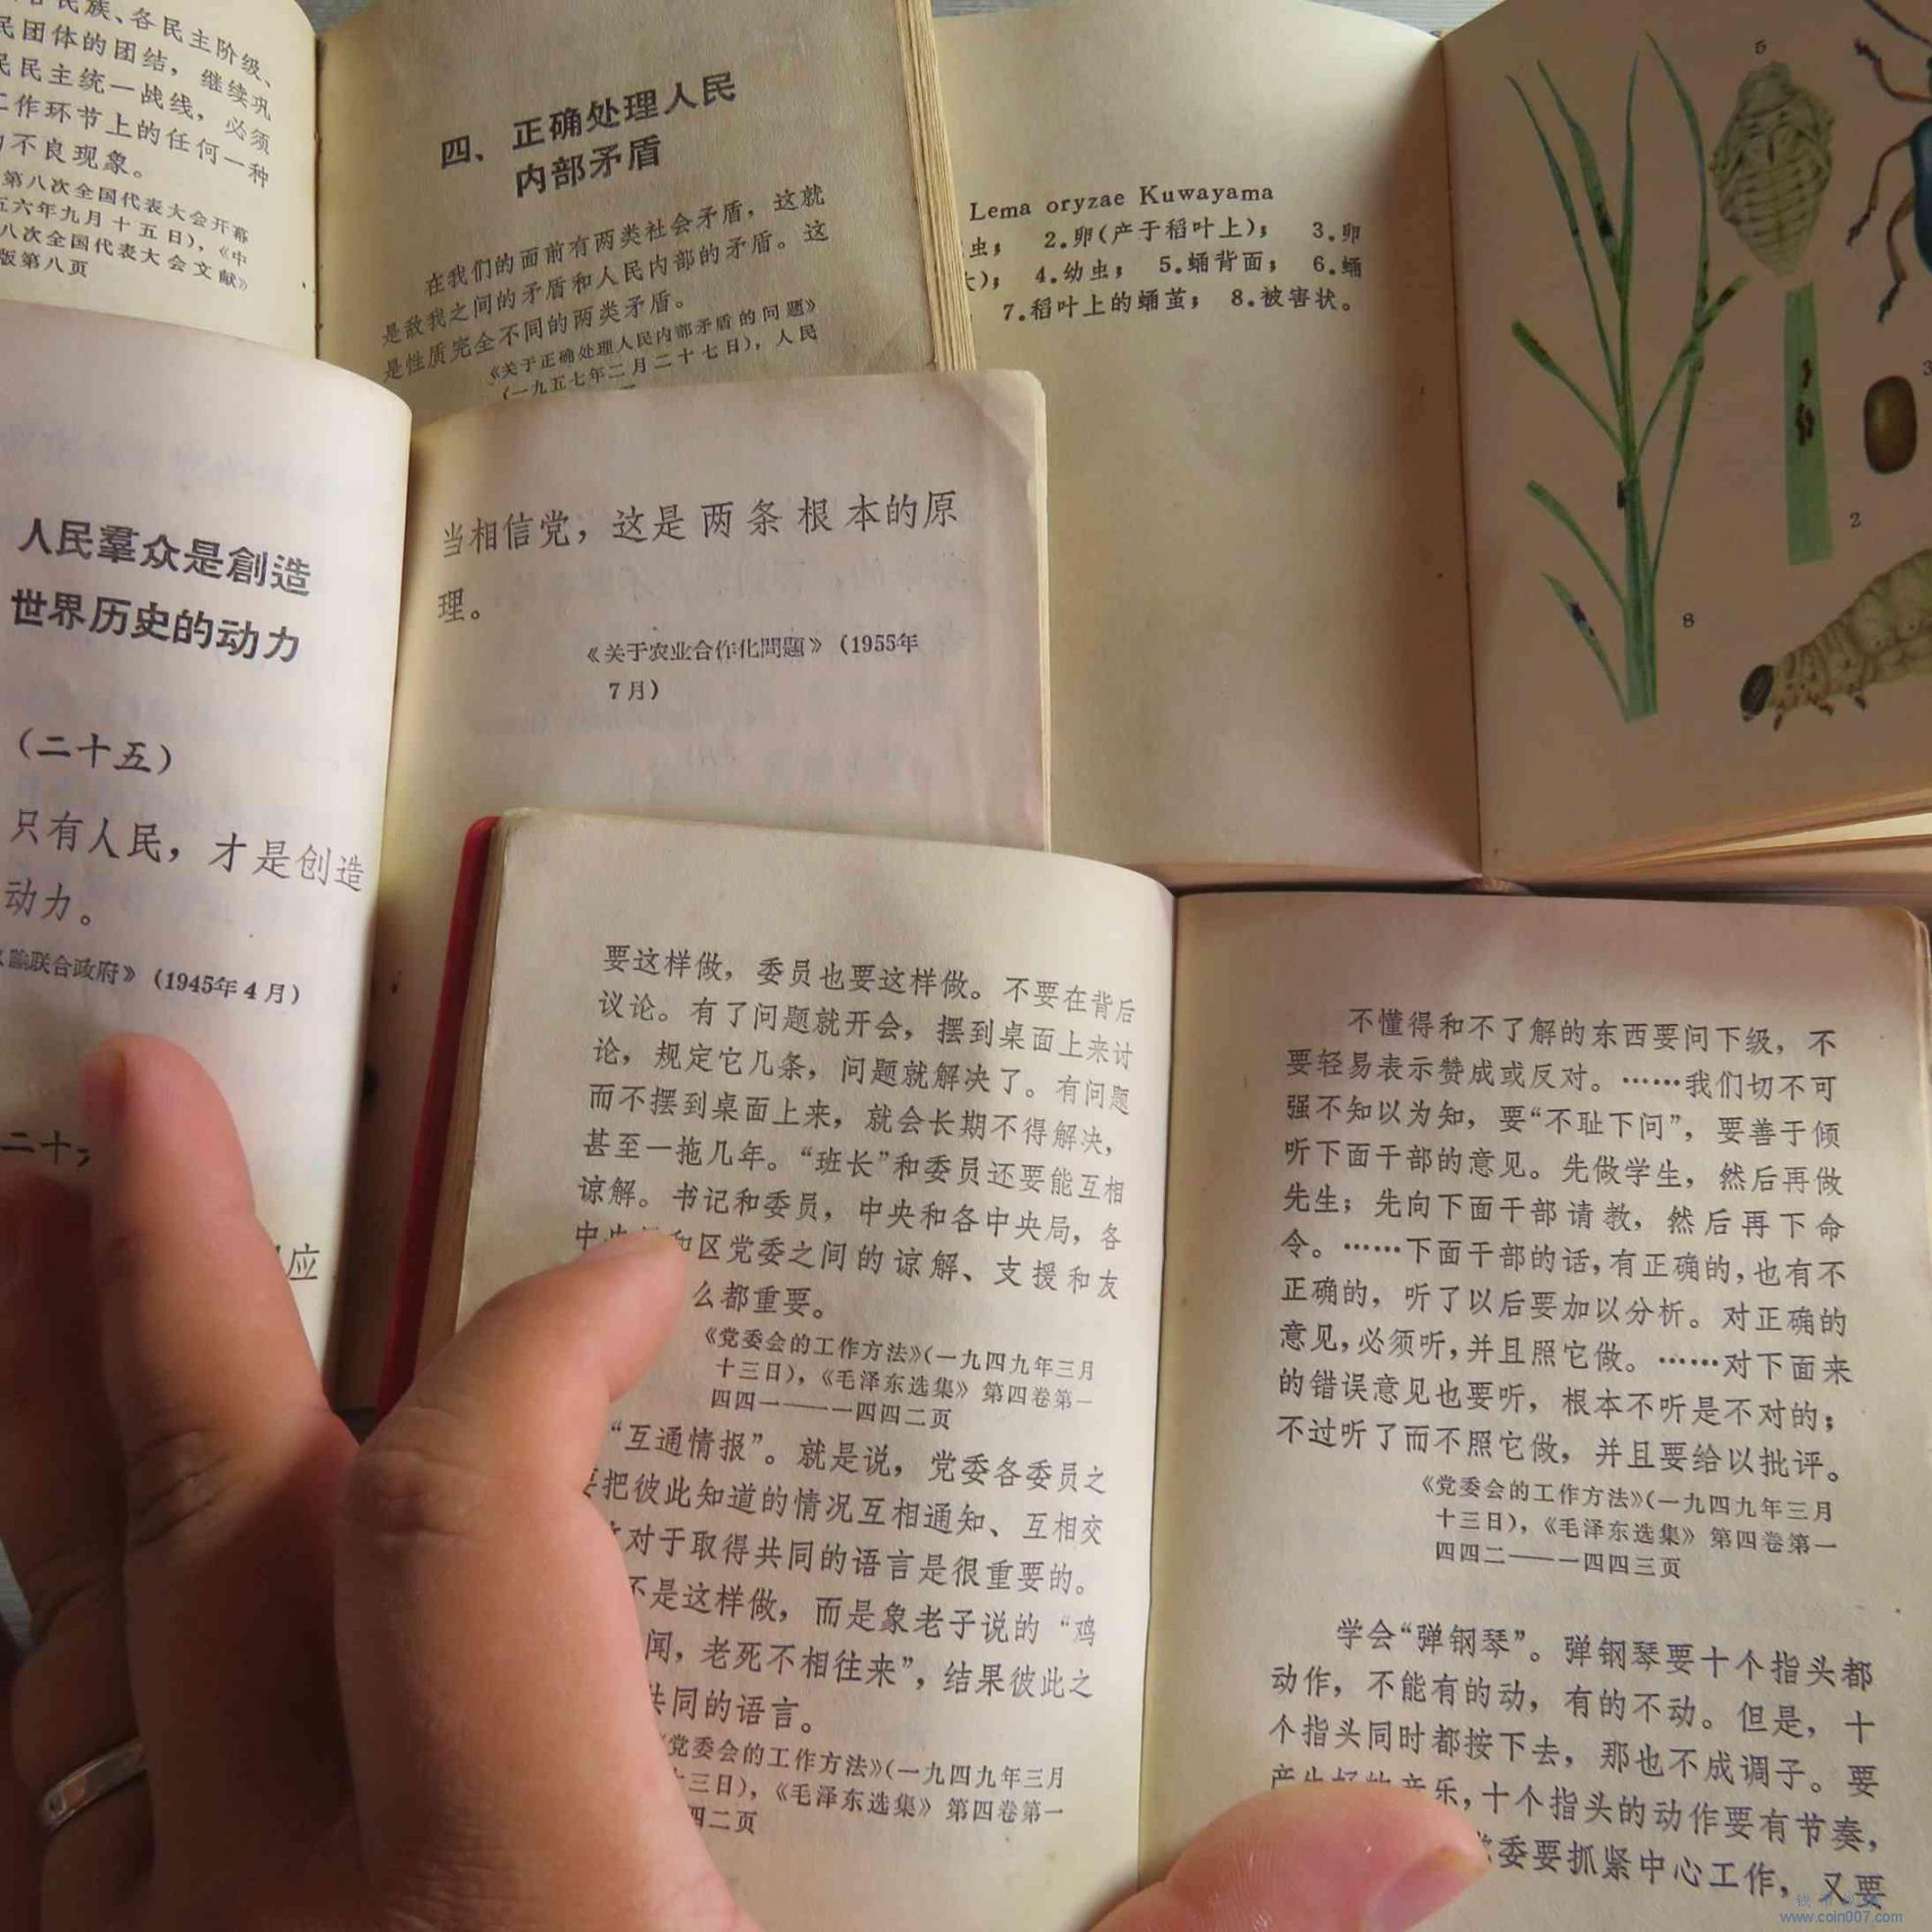 各民族、各民主阶级、
民团体的团结，继续巩
民民主统一战线，必须
工作环节上的任何一种
不良现象。
第八次全国代表大会开幕
五六年九月十五日），《中
八次全国代表大会文献》
版第八页
四、正确处理人民
内部矛盾
在我们的面前有两类社会矛盾，这就
是敌我之间的矛盾和人民内部的矛盾。这
是性质完全不同的两类矛盾。
《关于正确处理人民内部矛盾的问题》
（一九五七年二月二十七日），人民
Lema oryzae Kuwayama
虫； 2.卵（产于稻叶上）； 3.卵
）； 4.幼虫； 5.蛹背面； 6.蛹
7.稻叶上的蛹茧； 8.被害状。
5
3
2
8
人民羣众是創造
世界历史的动力
（二十五）
只有人民，才是创造
动力。
联合政府》（1945年4月）
二十
应
当相信党，这是两条根本的原
理。
《关于农业合作化問題》（1955年
7月）
要这样做，委员也要这样做。不要在背后
议论。有了问题就开会，摆到桌面上来讨
论，规定它几条，问题就解决了。有问题
而不摆到桌面上来，就会长期不得解决，
甚至一拖几年。“班长”和委员还要能互相
谅解。书记和委员，中央和各中央局，各
中央 和区党委之间的谅解、支援和友
么都重要。
《党委会的工作方法》（一九四九年三月
十三日），《毛泽东选集》第四卷第一
四四一——一四四二页
“互通情报”。就是说，党委各委员之
要把彼此知道的情况互相通知、互相交
对于取得共同的语言是很重要的。
不是这样做，而是象老子说的“鸡
闻，老死不相往来”，结果彼此之
共同的语言。
《党委会的工作方法》（一九四九年三月
十三日），《毛泽东选集》第四卷第一
四二页
不懂得和不了解的东西要问下级，不
要轻易表示赞成或反对。……我们切不可
强不知以为知，要“不耻下问”，要善于倾
听下面干部的意见。先做学生，然后再做
先生；先向下面干部请教，然后再下命
令。……下面干部的话，有正确的，也有不
正确的，听了以后要加以分析。对正确的
意见，必须听，并且照它做。……对下面来
的错误意见也要听，根本不听是不对的；
不过听了而不照它做，并且要给以批评。
《党委会的工作方法》（一九四九年三月
十三日），《毛泽东选集》第四卷第一
四四二——一四四三页
学会“弹钢琴”。弹钢琴要十个指头都
动作，不能有的动，有的不动。但是，十
个指头同时都按下去，那也不成调子。要
产生好的音乐，十个指头的动作要有节奏，
党委要抓紧中心工作，又要
www.coin007.com